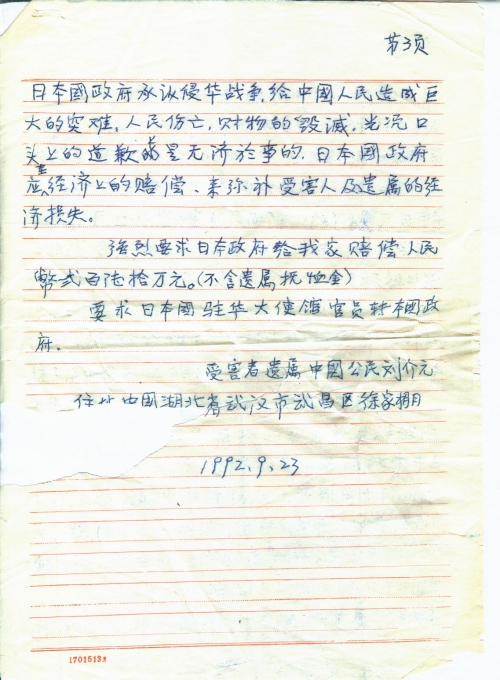 第3页
日本國政府承认侵华战争,给中國人民造成巨
大的灾难,人民伤亡,财物的毁滅,光凭口
头上的道歉是无济於事的,日本國政府
应经济上的赔偿、来弥补受害人及遗属的经
济损失。
强烈要求日本政府给我家赔偿人民
幣弍百陆拾万元。(不含遗属抚恤金)
要求日本國驻华大使馆官员转本國政
府.
受害者遗属中國公民刘价元
住址中国湖北省武汉市武昌区徐家棚
1992.9.23
17015138